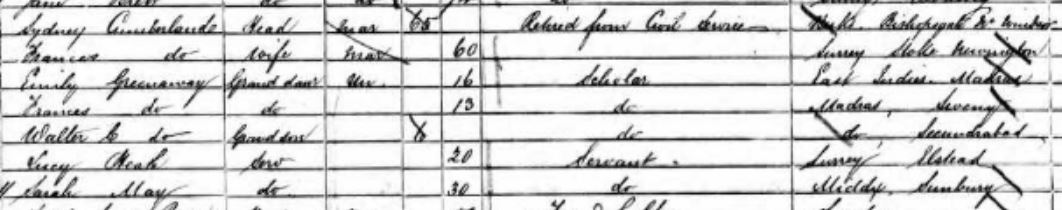 Sydney Cumberlande Head Mar 65 Retired from Civil Service Bishopsgate Nr Windsor
Frances do Wife Mar 60 Surrey Stoke Newington
Emily Greenaway Grand daur Un. 16 Scholar East Indies. Madras
Frances do do 13 do Madras,
Walter C do Grandson do do, Secundrabad
Lucy Heath Serv 20 Servant. Surrey Elstead
Sarah May do 30 do Middx, Sunbury